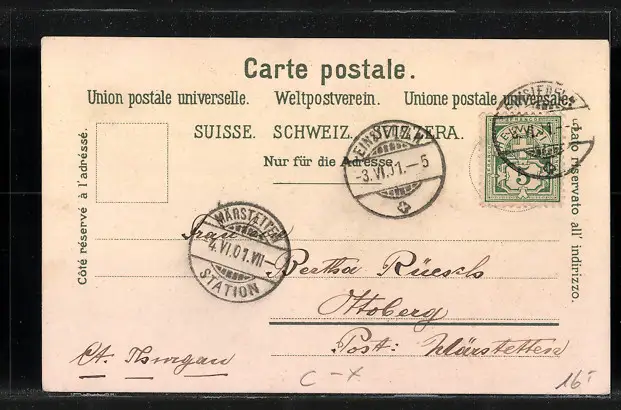 Carte postale.
Union postale universelle. Weltpostverein. Unione postale universale.
SUISSE. SCHWEIZ. SVIZZERA.
Nur für die Adresse
Côté réservé à l'adresse.
Lato riservato all' indirizzo.
EINSIEDELN
-3.VI.01.-5
EINSIEDELN
5
MÄRSTETTEN
4.VI.01.VII-
STATION
Frau
Bertha Rüesch
Ottoberg
Post: Märstetten
Ct. Thurgau
C - x
16.-